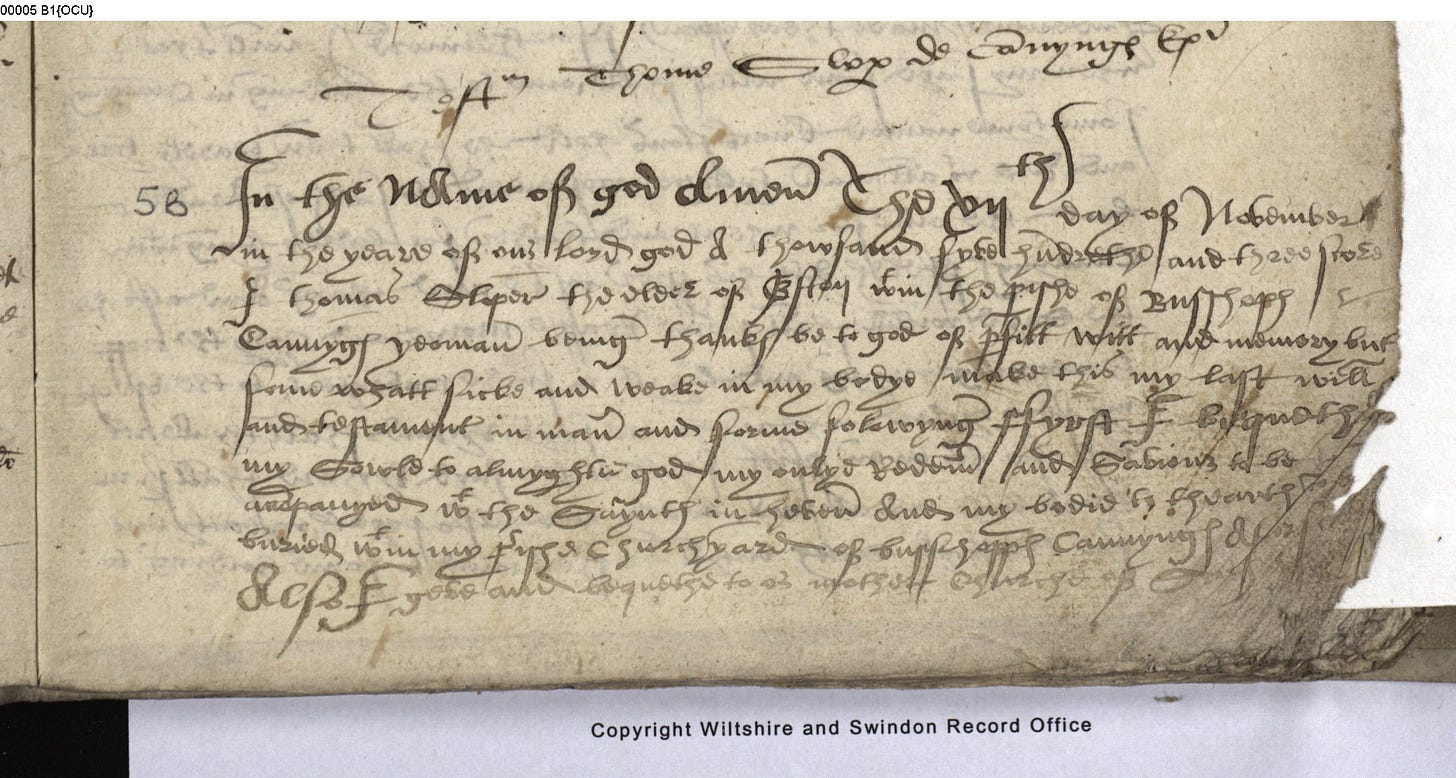 00005 B1{OCU}
Testm Thome Slop de Canyngs Epi
58
In the Name of god Amen The xvii th day of November
in the yeare of our lord god A thowsand fyve hundrethe and three score
I thomas Sloper the elder of Eston wtin the pishe of Busshoph
Cannygs yeoman being thanks be to god of pfitt witt and memory but
some whatt sicke and weake in my bodye make this my last will
and testament in man and forme folowyng ffyrst I bequeth
my Sowle to almyghtie god my onlye Redem and Saviour to be
accompanyed wt the Saynts in heven And my bodie to thearth
buried wtin my pishe Churchyard of busshopph Cannyngs
Also I geve and bequethe to or mother Churche of
Copyright Wiltshire and Swindon Record Office